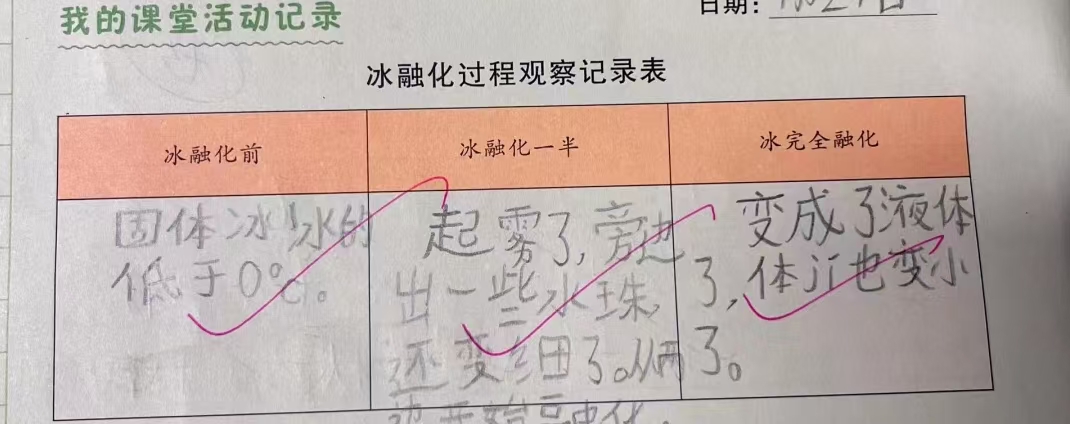 我的课堂活动记录
日期：
冰融化过程观察记录表
冰融化前
冰融化一半
冰完全融化
固体冰冰的
低于0℃。
起雾了,旁边
出一些水珠,
还变细了。从两
边开始融化.
变成了液体
了,体jī也变小
了。